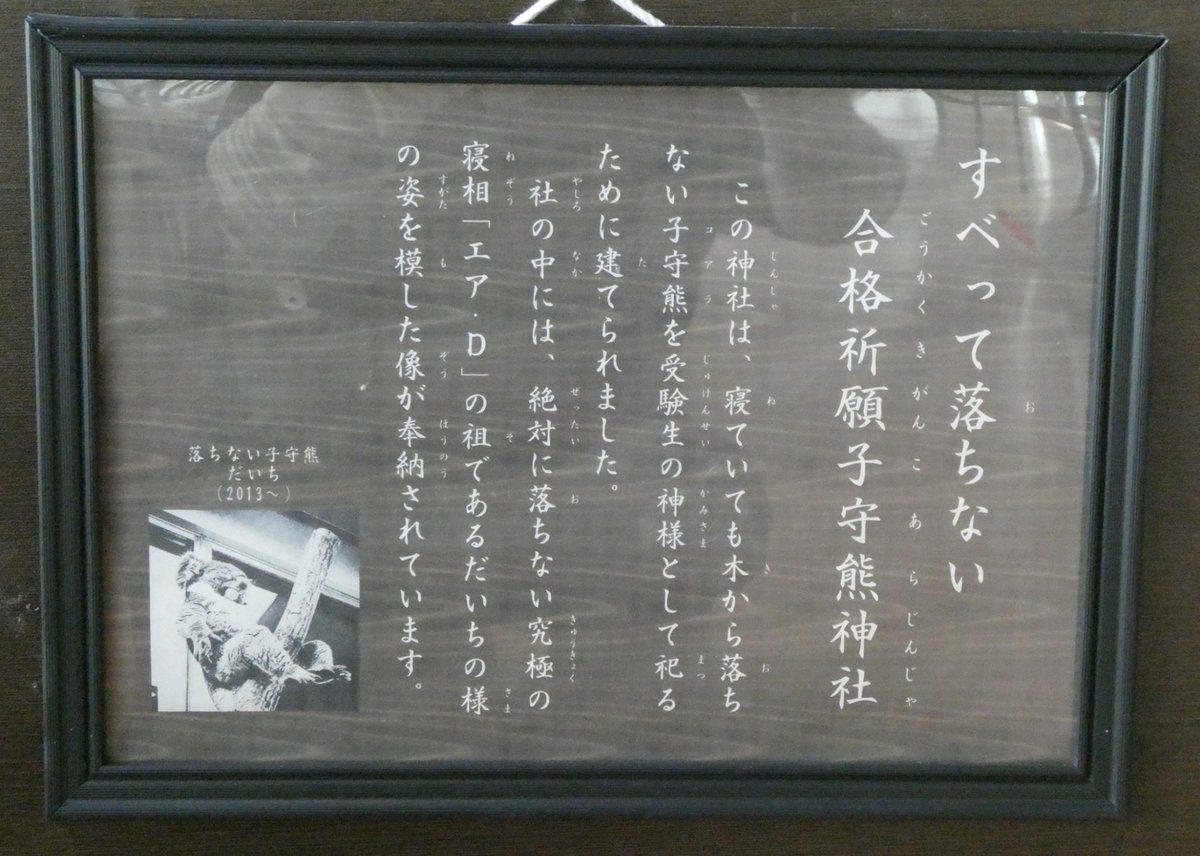 すべって落ちない
合格祈願子守熊神社
この神社は、寝ていても木から落ち
ない子守熊を受験生の神様として祀る
ために建てられました。
社の中には、絶対に落ちない究極の
寝相「エア・D」の祖であるだいちの様
の姿を模した像が奉納されています。
落ちない子守熊
だいち
(2013～)